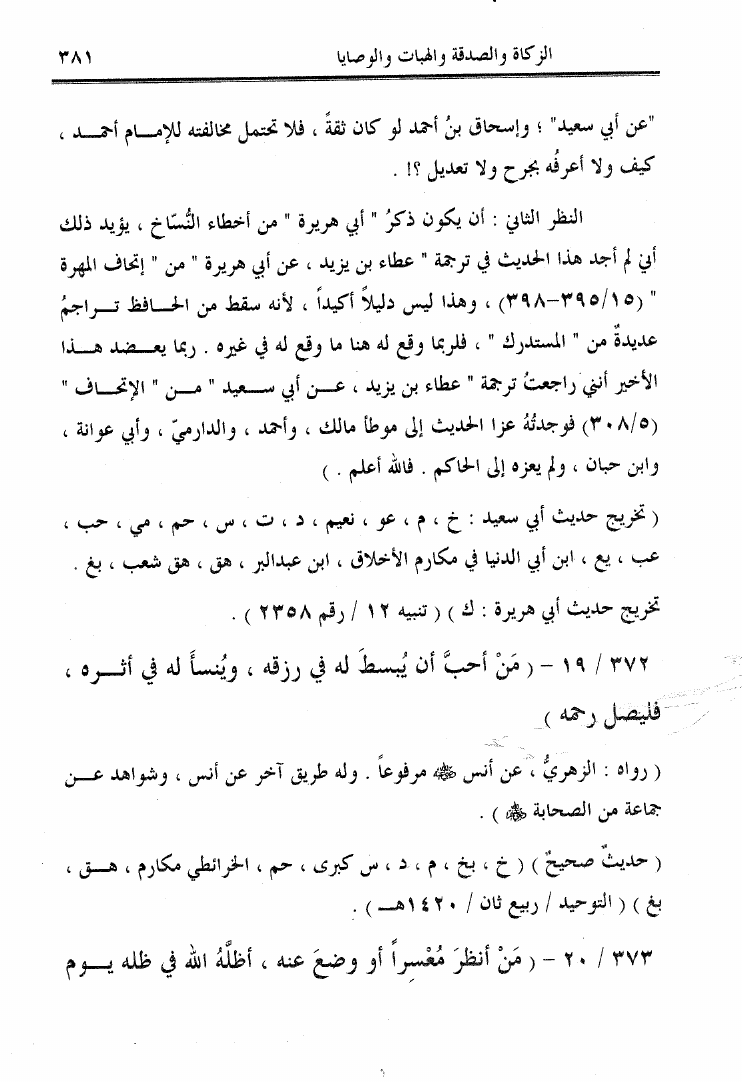 الزكاة والصدقة والهبات والوصايا ٣٨١
"عن أبي سعيد" ؛ وإسحاق بنُ أحمد لو كان ثقةً ، فلا تحتمل مخالفته للإمـــام أحمـــد ،
كيف ولا أعرفُه بجرح ولا تعديل ؟! .
النظر الثاني : أن يكون ذكرُ " أبي هريرة " من أخطاء النُّسّاخ ، يؤيد ذلك
أني لم أجد هذا الحديث في ترجمة " عطاء بن يزيد ، عن أبي هريرة " من " إتحاف المهرة
" (٣٩٥/١٥-٣٩٨) ، وهذا ليس دليلاً أكيداً ، لأنه سقط من الحـافظ تـــراجمُ
عديدةٌ من " المستدرك " ، فلربما وقع له هنا ما وقع له في غيره . ربما يعـــضد هـــذا
الأخير أنني راجعتُ ترجمة " عطاء بن يزيد ، عـــن أبي ســـعيد " مـــن " الإتحـــاف "
(٣٠٨/٥) فوجدتُهُ عزا الحديث إلى موطأ مالك ، وأحمد ، والدارميّ ، وأبي عوانة ،
وابن حبان ، ولم يعزه إلى الحاكم . فالله أعلم . )
( تخريج حديث أبي سعيد : خ ، م ، عو ، نعيم ، د ، ت ، س ، حم ، مي ، حب ،
عب ، يع ، ابن أبي الدنيا في مكارم الأخلاق ، ابن عبدالبر ، هق ، هق شعب ، بغ .
تخريج حديث أبي هريرة : ك ) ( تنبيه ١٢ / رقم ٢٣٥٨ ) .
٣٧٢ / ١٩ - ( مَنْ أحبَّ أن يُبسطَ له في رزقه ، ويُنسأَ له في أثـــره ،
فليصل رحمه )
( رواه : الزهريُّ ، عن أنس ﷺ مرفوعاً . وله طريق آخر عن أنس ، وشواهد عـــن
جماعة من الصحابة ﷺ ) .
( حديثٌ صحيحٌ ) ( خ ، بخ ، م ، د ، س كبرى ، حم ، الخرائطي مكارم ، هـــق ،
بغ ) ( التوحيد / ربيع ثان / ١٤٢٠هـــ ) .
٣٧٣ / ٢٠ - ( مَنْ أنظرَ مُعْسِراً أو وضعَ عنه ، أظلَّهُ الله في ظله يـــوم